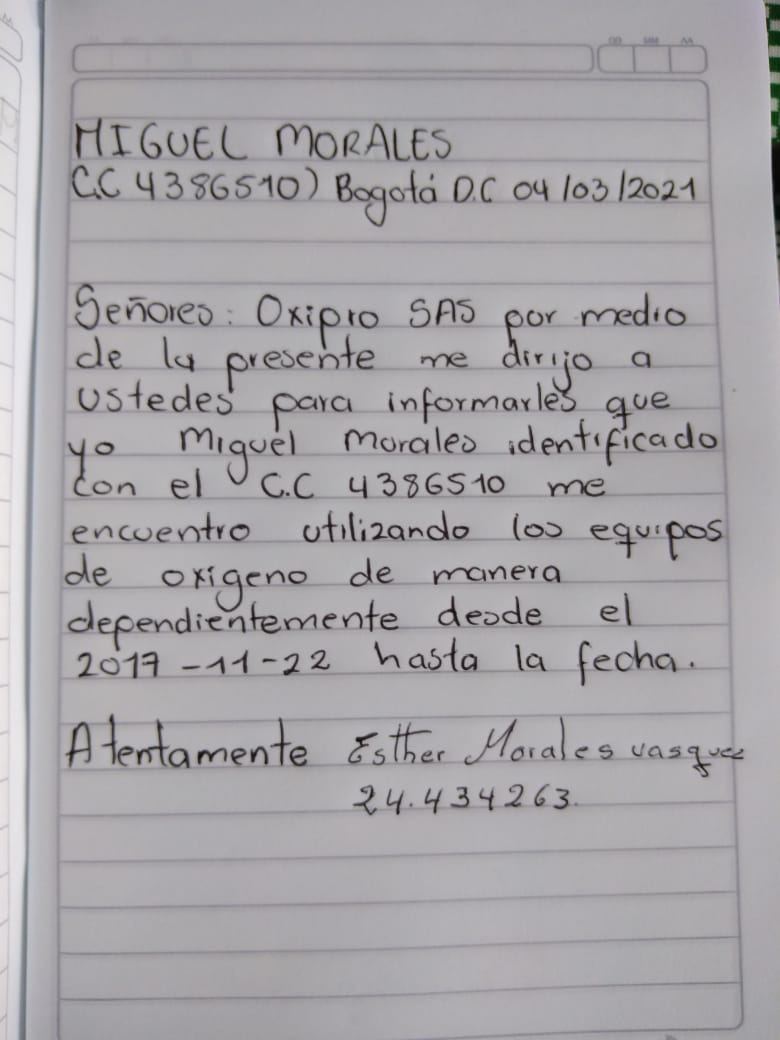 DD MM AA
MIGUEL MORALES
C.C 4386510) Bogotá D.C 04/03/2021
Señores: Oxipro SAS por medio
de la presente me dirijo a
ustedes para informarles que
yo Miguel Morales identificado
con el C.C 4386510 me
encuentro utilizando los equipos
de oxigeno de manera
dependientemente desde el
2017-11-22 hasta la fecha.
Atentamente Esther Morales vasquez
24.434263.